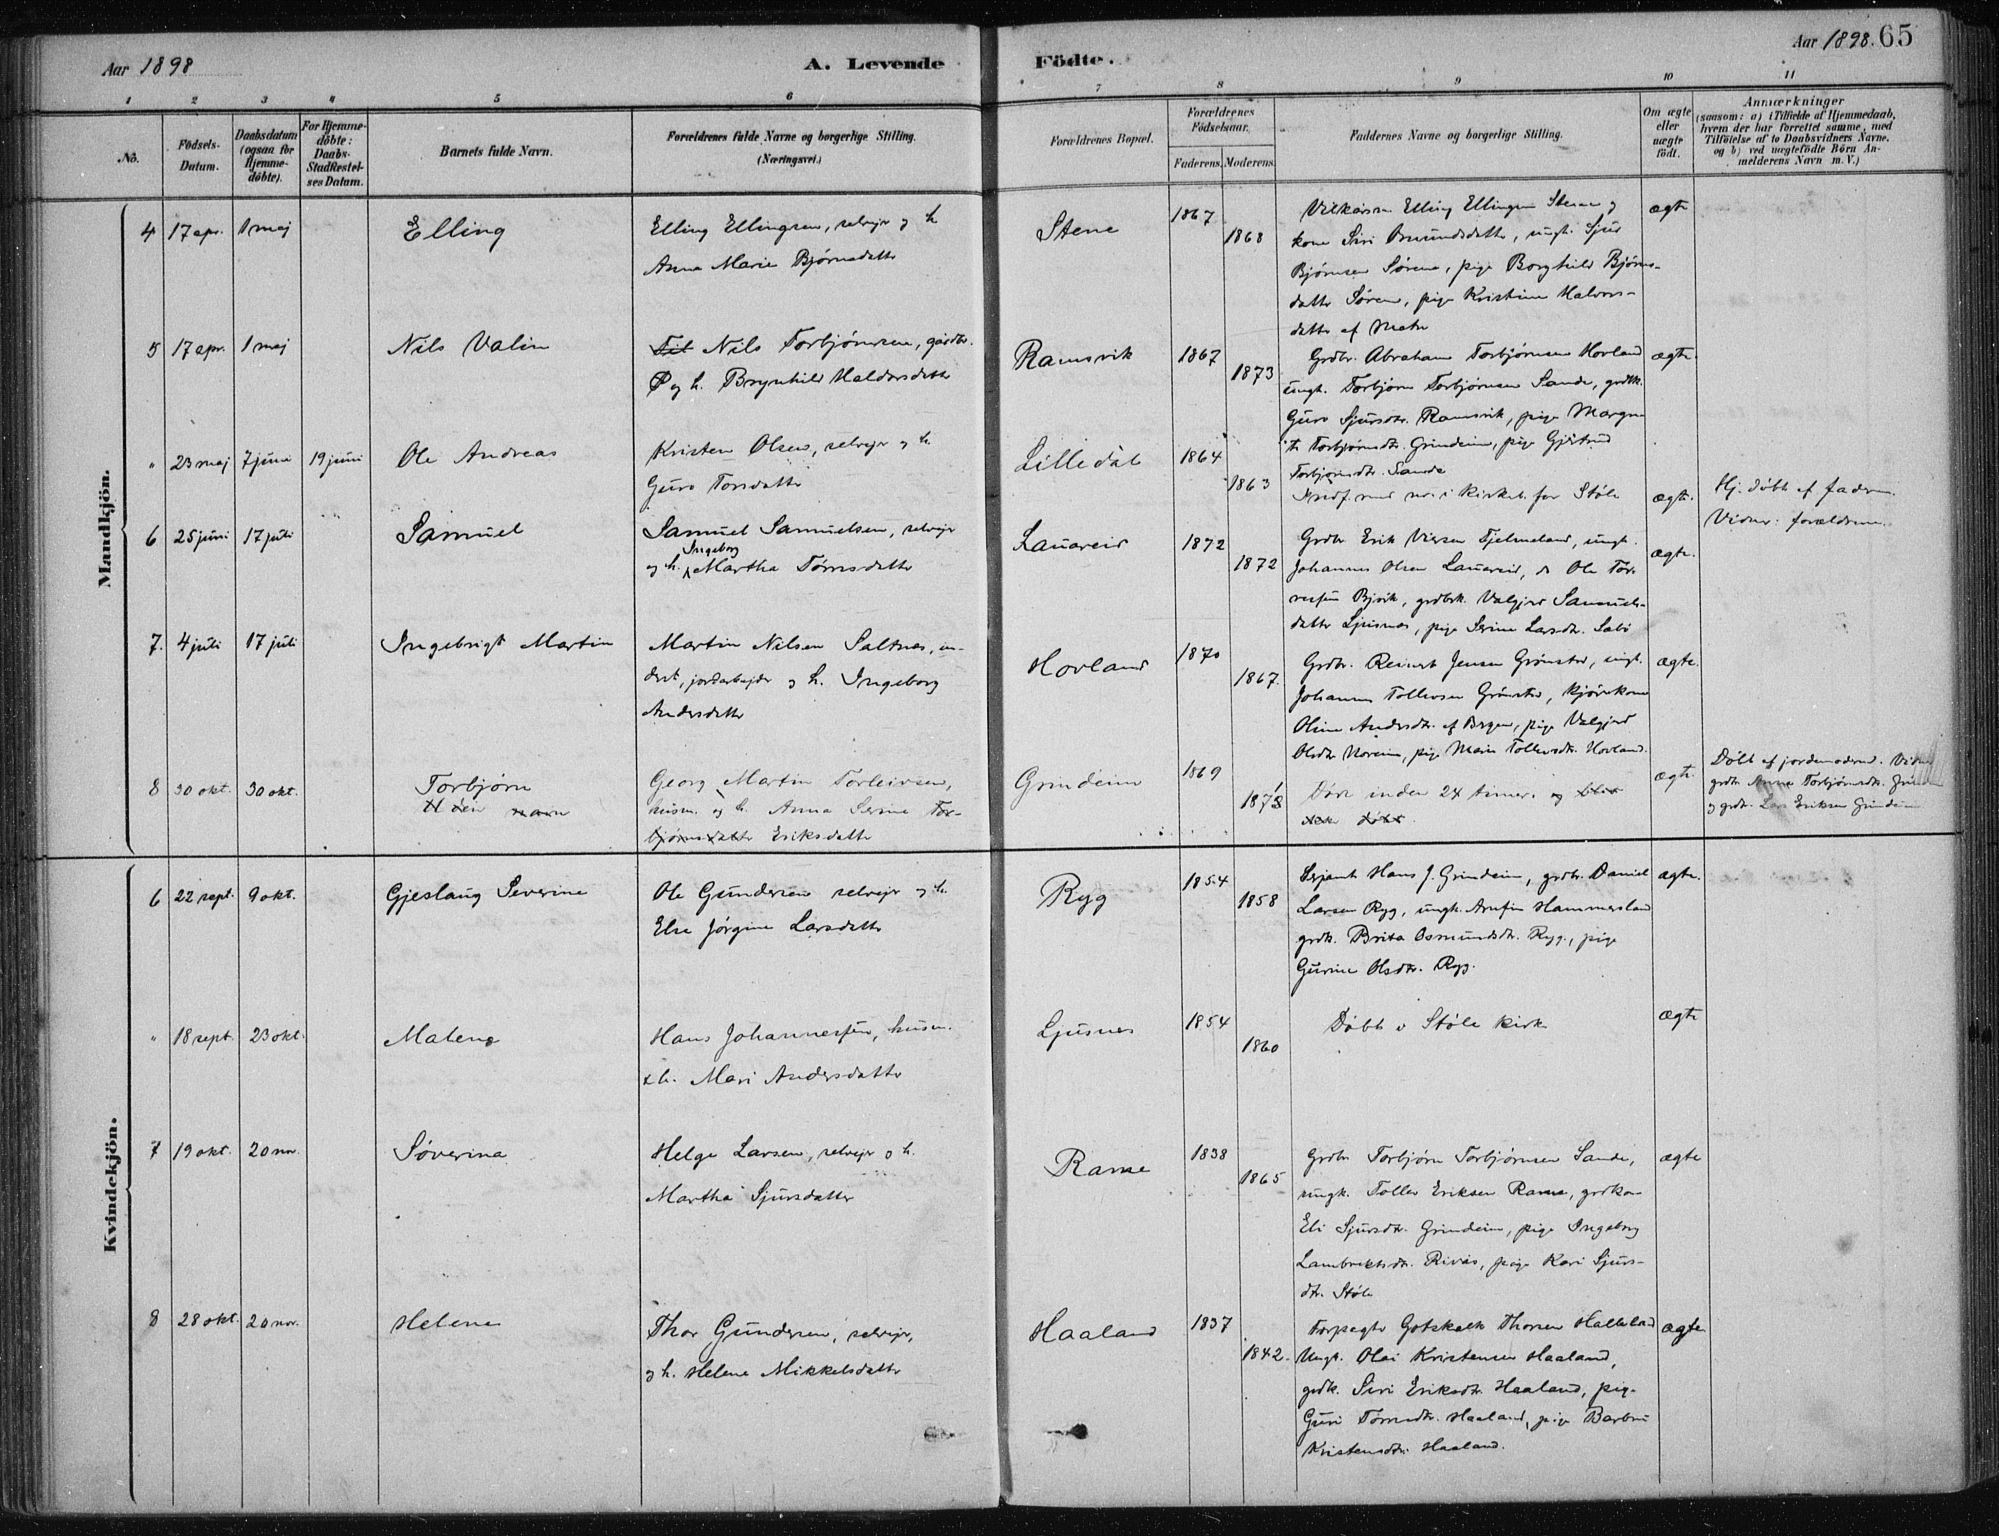 Aar 1898
A. Levende
Födte.
Aar 1898. 65
1 2 3 4 5 6 7 8 9 10 11
No.
Födsels-
Datum.
Daabsdatum
(ogsaa for
Hjemme-
döbte).
For Hjemme-
döbte:
Daabs-
Stadfæstel-
ses Datum.
Barnets fulde Navn.
Forældrenes fulde Navne og borgerlige Stilling.
(Næringsvei.)
Forældrenes Bopæl.
Forældrenes
Födselsaar.
Faderens. Moderens.
Faddernes Navne og borgerlige Stilling.
Om ægte
eller
uægte
født.
Anmærkninger
(saasom: a) i Tilfælde af Hjemmedaab,
hvem der har forrettet samme, med
Tilføielse af to Daabsvidners Navne.
og b) ved uægtefödte Börn An-
melderens Navn m. V.)
Mandkjön.
4 17 apr. 1 maj
Elling
Elling Ellingsen, selvejer og h.
Anna Marie Bjørnsdatter
Stene
1867
1868
Elling Ellingsen Stene og
kone Siri Omundsdatter, ungk. Sjur
Bjørnsen Sørene, pige Borghild Bjørns-
datter Søren, pige Kristine Halvors-
datter af Matre
ægte
5 17 apr. 1 maj
Nils Valin
Nils Torbjørnsen, gårdbr.
og h. Brynhild Haldorsdatter
Ramsvik
1867
1873
Grdbr. Abraham Torbjørnsen Hovland
ungk. Torbjørn Torbjørnsen Sande, grdbk.
Guro Sjursdtr. Ramsvik, pige Margre-
te Torbjørnsdtr. Grindeim, pige Gjertrud
Torbjørnsdtr. Sande
ægte.
" 23 maj 7 juni 19 juni
Ole Andreas
Kristen Olsen, selvejer og h.
Guro Torsdatter
Lilledal
1864
1863
Nedf. med nr. i kirkeb. for Støle
ægte.
Hj. døbt af faderen.
Vidner: forældrene.
6 25 juni 17 juli
Samuel
Samuel Samuelsen, selvejer
Ingeborg
og h. Martha Tørresdatter
Lauareid
1872
1872
Grdbr. Erik Viksen Fjelmeland, ungk.
Johannes Olsen Lauareid, do Ole Tor-
resen Bjøik, grdbrk. Valgjerd Samuels-
datter Ljusnes, pige Serine Larsdtr. Sæbø
ægte.
7. 4 juli 17 juli
Ingebrigt Martin
Martin Nilsen Saltnes, in-
derst, jordarbejder og h. Ingeborg
Andersdatter
Hovland
1870
1867.
Grdbr. Reinert Jensen Grønstad, ungk.
Johannes Tollevsen Grønstad,
Oline Andersdtr. af Bergen, pige Valgjerd
Olsdtr. Noreim, pige Mari Tollevsdtr. Hovland.
ægte.
8 30 okt. 30 okt.
Torbjørn
Uden navn
Georg Martin Torleivsen,
husm. og h. Anna Serine Tor-
bjørnsdatter Eriksdatter
Grindeim
1869
1873
Døde inden 24 timer. og blev
ikke døbt.
ægte.
Døbt af jordemoderen. Vidner
grdk. Anna Torbjørnsdtr. Grindeim
og grdbr. Lars Eriksen Grindeim
Kvindekjön.
6 22 sept. 9 okt.
Gjeslaug Severine
Ole Gundersen selvejer og h.
Else Jørgine Larsdatter
Ryg
1854
1858
Serjant Hans J. Grindeim, grdbr. Daniel
Larsen Ryg, ungk. Arnfin Hammersland
grdk. Brita Osmundsdtr. Ryg, pige
Gurine Olsdtr. Ryg.
ægte.
" 18 sept. 23 okt.
Malene
Hans Johannessen, husm.
& h. Mari Andersdatter
Ljusnes
1854
1860
Døbt v Støle kirk
ægte
7 19 okt. 20 nov.
Søverina
Helge Larsen, selvejer og h.
Martha Sjursdatter
Ramse
1838
1865
Grdbr. Torbjørn Torbjørnsen Sande,
ungk. Tollev Eriksen Ramse, grdkone
Eli Sjursdtr. Grindeim, pige Ingeborg
Lambrektsdtr. Rivås, pige Kari Sjurs-
dtr. Støle
ægte
8 28 okt. 20 nov.
Helene
Thor Gundersen, selvejer,
og h. Helene Mikkelsdatter
Haaland
1837
1842.
Forpagter Gotskalk Thorsen Halleland
Ungk. Olai Kristensen Haaland,
grdk. Siri Eriksdtr. Haaland, pige
Guri Tørresdtr. Haaland, pige Barbru
Kristensdtr. Haaland.
ægte